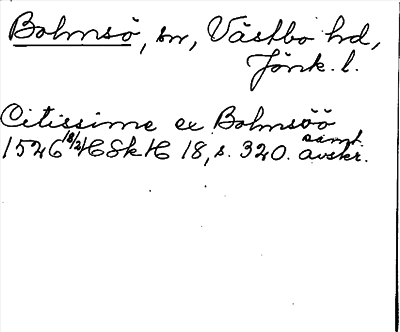 Bolmsö, sn, Västbo hd,
Jönk. l.
Citissime ex Bolmsöö
1526 18/2 HSkH 18, s. 320. samt. avskr.